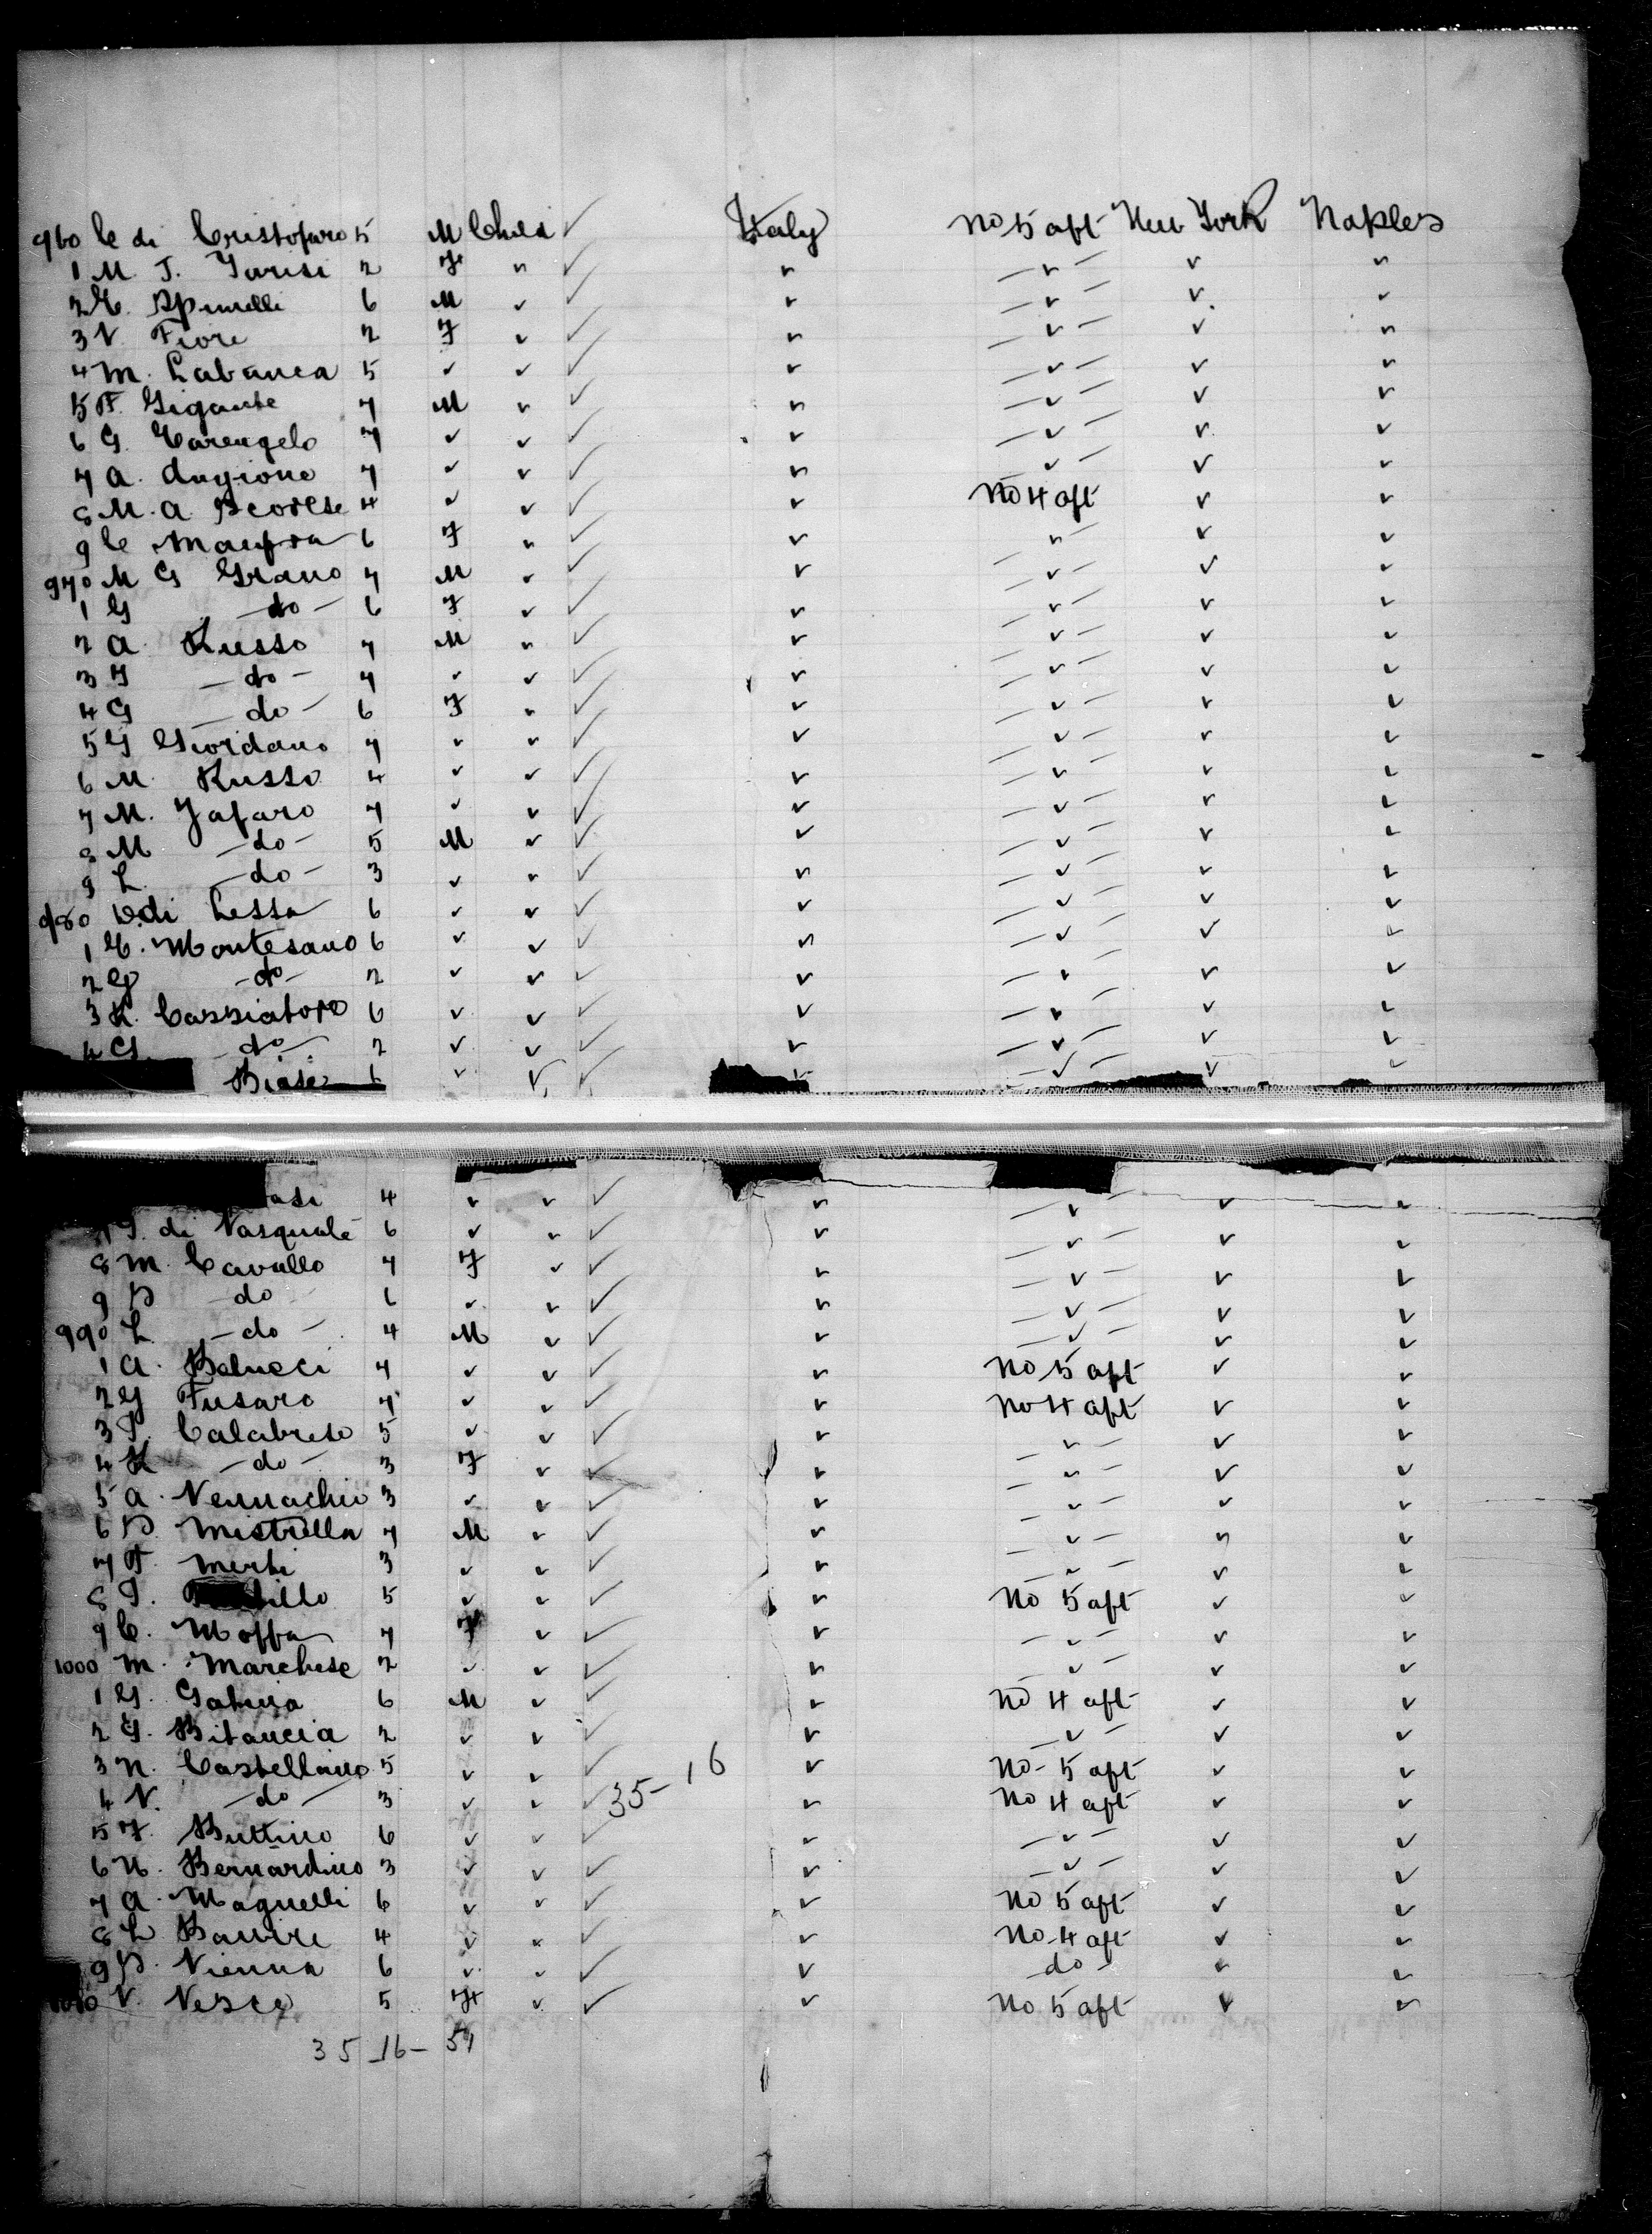 960 C di Cristofaro 5 M Child ✓ Italy No 5 aft New York Naples
1 M. T. 2 F " ✓ " — " — " "
2 G. Spinelli 6 M " ✓ " — " — " "
3 V. Fiore 2 F " ✓ " — " — " "
4 M. Labanca 5 " " ✓ " — " — " "
5 F. Gigante 7 M " ✓ " — " — " "
6 G. Carengelo 7 " " ✓ " — " — " "
7 A. 7 " " ✓ " — " — " "
8 M. A. 4 " " ✓ " No 4 aft " "
9 C 6 F " ✓ " " — " "
970 M G Grano 7 M " ✓ " — " — " "
1 G — do — 6 F " ✓ " — " — " "
2 A. Russo 7 M " ✓ " — " — " "
3 — do — 7 " " ✓ " — " — " "
4 G — do — 6 F " ✓ " — " — " "
5 G Giordano 7 " " ✓ " — " — " "
6 M Russo 4 " " ✓ " — " — " "
7 M. Zafaro 7 " " ✓ " — " — " "
8 M — do — 5 M " ✓ " — " — " "
9 L. — do — 3 " " ✓ " — " — " "
980 di Lessa 6 " " ✓ " — " — " "
1 G. Montesano 6 " " ✓ " — " — " "
2 G — do — 2 " " ✓ " — " — " "
3 R. Cassiatore 6 " " ✓ " — " — " "
4 G. — do — 2 " " ✓ " — " — " "
Biase 6 " " ✓ " — " — " "
asi 4 " " ✓ " — " — " "
di Pasquale 6 " " ✓ " — " — " "
8 M. Cavallo 7 F " ✓ " — " — " "
9 do 6 " " ✓ " — " — " "
990 L. — do — 4 M " ✓ " — " — " "
1 A. Belucci 7 " " ✓ " No 5 aft " "
2 G Fusaro 7 " " ✓ " No 4 aft " "
3 Calabrese 5 " " ✓ " " — " "
4 R — do — 3 F " ✓ " — " — " "
5 A. 3 " " ✓ " — " — " "
6 D. Mistrella 7 M " ✓ " — " — " "
7 F. Merti 3 " " ✓ " — " — " "
8 5 " " ✓ " No 5 aft " "
9 C. Moffa 7 F " ✓ " — " — " "
1000 M. Marchese 2 " " ✓ " — " — " "
1 G. 6 M " ✓ " No 4 aft " "
2 G. Bitancia 2 " " ✓ " — " — " "
3 N. Castellano 5 " " ✓ " No 5 aft " "
4 V. — do — 3 " " ✓ 35-16 " No 4 aft " "
5 F. Buttino 6 " " ✓ " — " — " "
6 N. Bernardino 3 " " ✓ " — " — " "
7 A. Magnelli 6 " " ✓ " No 5 aft " "
8 L 4 " " ✓ " No 4 aft " "
9 D. Vienna 6 " " ✓ " do " "
1010 V. Pesce 5 F " ✓ " No 5 aft " "
35 16 — 51